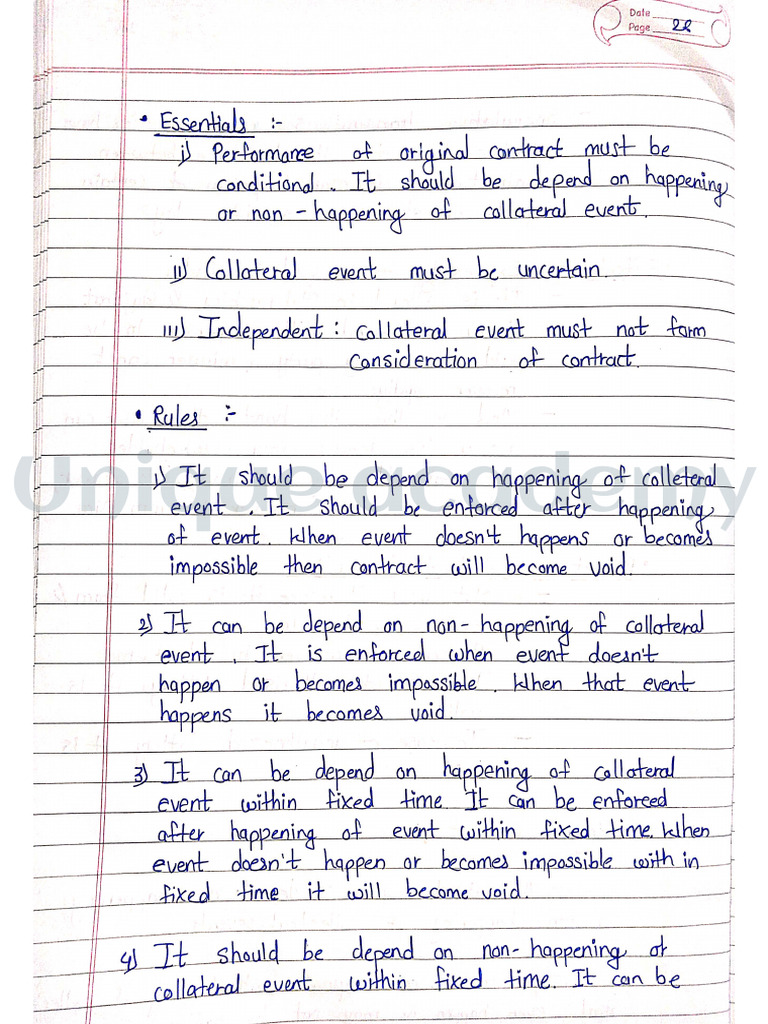 Date
Page 22
• Essentials :-
i) Performance of original contract must be
conditional. It should be depend on happening
or non-happening of collateral event.
ii) Collateral event must be uncertain.
iii) Independent : Collateral event must not form
consideration of contract.
• Rules :-
Unique academy
1) It should be depend on happening of colleteral
event. It should be enforced after happening
of event. When event doesn't happens or becomes
impossible then contract will become void.
2) It can be depend on non-happening of collateral
event. It is enforced when event doesn't
happen or becomes impossible. When that event
happens it becomes void.
3) It can be depend on happening of collateral
event within fixed time. It can be enforced
after happening of event within fixed time. When
event doesn't happen or becomes impossible with in
fixed time it will become void.
4) It should be depend on non-happening of
collateral event within fixed time. It can be